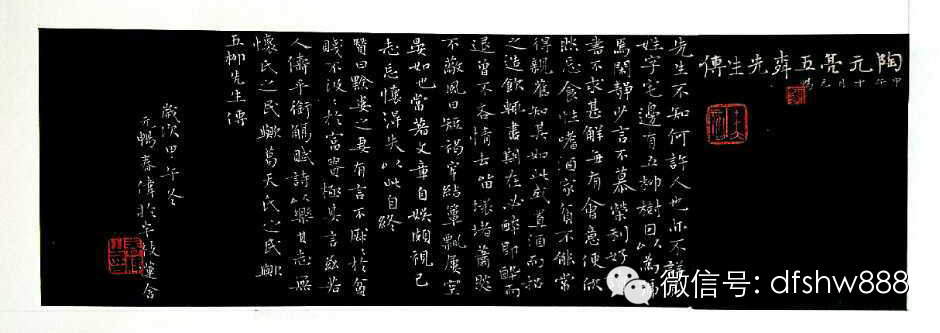 陶元亮五柳先生傳
先生不知何許人也亦不詳
姓字宅邊有五柳樹因以為號
焉閑靜少言不慕榮利好
書不求甚解每有會意便欣
然忘食性嗜酒家貧不能常
得親舊知其如此或置酒而招
之造飲輒盡期在必醉既醉而
退曾不吝情去留環堵蕭然
不蔽風日短褐穿結簞瓢屢空
晏如也當著文章自娛頗視己
志忘懷得失以此自終
贊曰黔婁之妻有言不戚〻於貧
賤不汲〻於富貴極其言茲若
人儔乎銜觴賦詩以樂其志無
懷氏之民歟葛天氏之民歟
五柳先生傳
歲次甲午冬
微信号: dfshw888